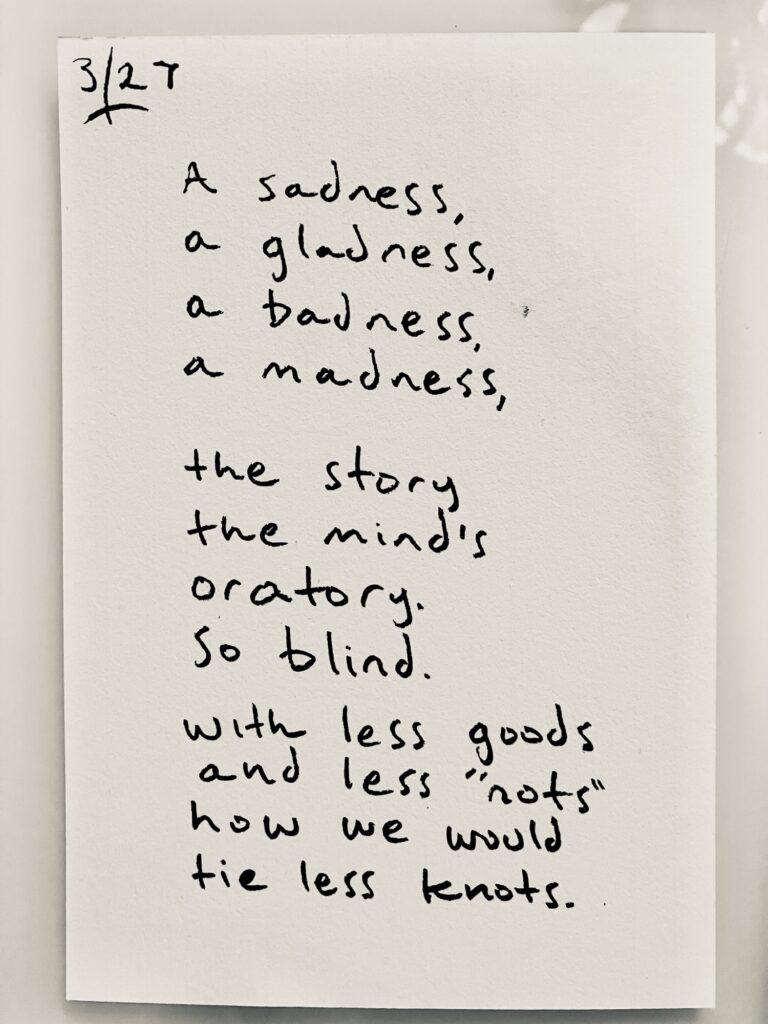 3/27
A sadness,
a gladness,
a badness,
a madness,
the story
the mind's
oratory.
So blind.
with less goods
and less "nots"
how we would
tie less knots.